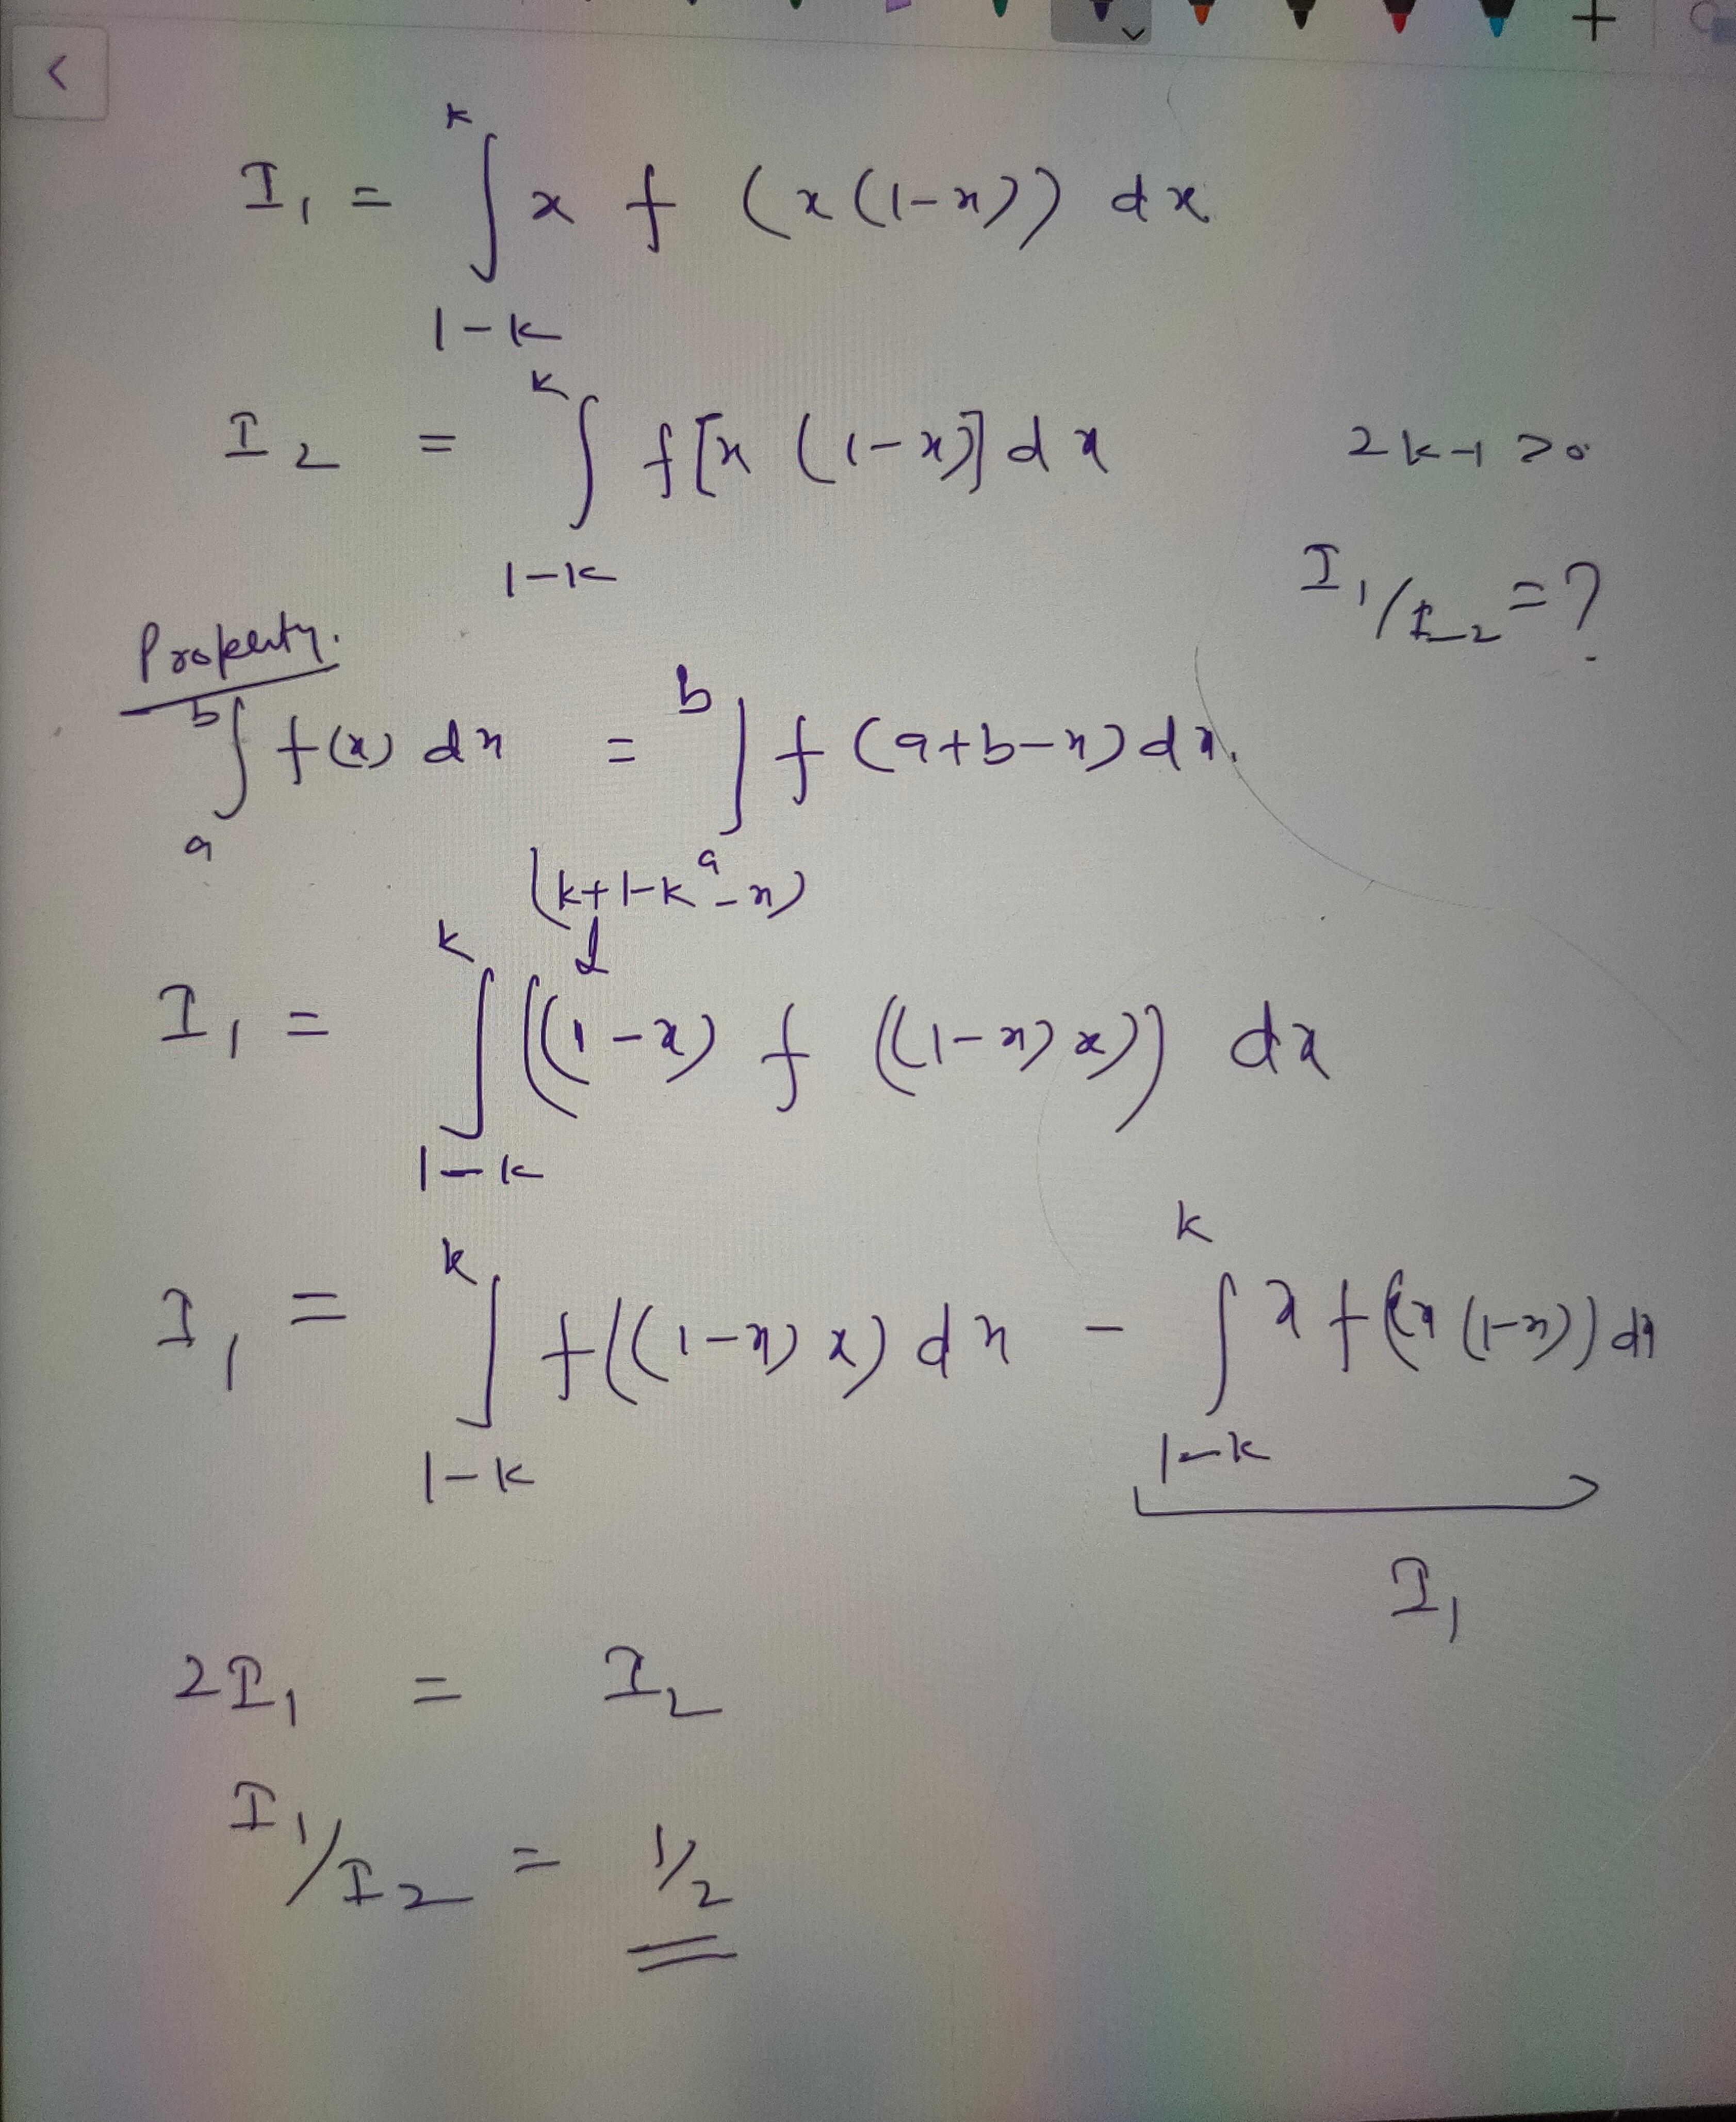 I₁ = ∫_{1-k}^{k} x f (x(1-x)) dx
I₂ = ∫_{1-k}^{k} f[x (1-x)] dx
2k-1 >0
I₁/I₂ = ?
Property.
∫_{a}^{b} f(x) dx = ∫_{a}^{b} f (a+b-x) dx.
(k+1-k-x)
I₁ = ∫_{1-k}^{k} ((1-x) f ((1-x) x)) dx
I₁ = ∫_{1-k}^{k} f((1-x) x) dx - ∫_{1-k}^{k} x f(x (1-x)) dx
I₁
2I₁ = I₂
I₁/I₂ = 1/2